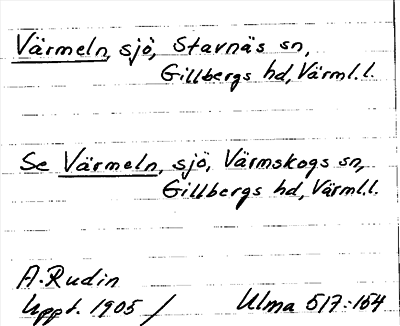 Värmeln, sjö, Stavnäs sn,
Gillbergs hd, Värml.l.
Se Värmeln, sjö, Värmskogs sn,
Gillbergs hd, Värml.l.
A. Rudin
Uppt. 1905 / Ulma 517:164